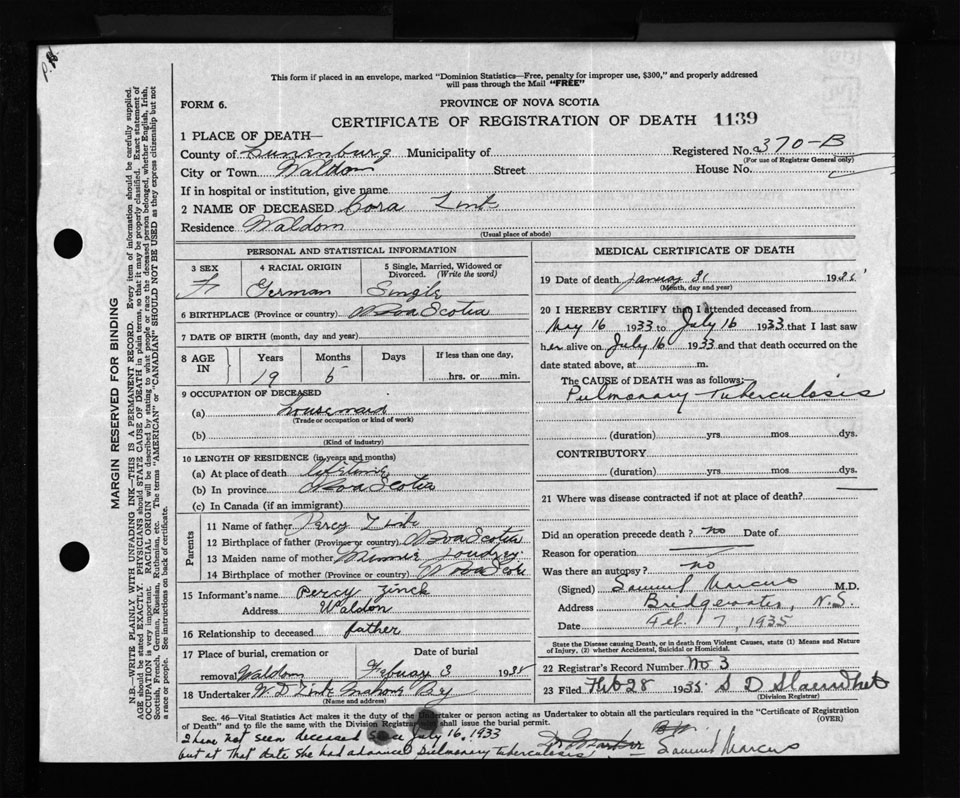 P.B.
This form if placed in an envelope, marked "Dominion Statistics—Free, penalty for improper use, $300," and properly addressed
will pass through the Mail "FREE"
FORM 6.
PROVINCE OF NOVA SCOTIA
CERTIFICATE OF REGISTRATION OF DEATH 1139
1 PLACE OF DEATH—
County of Lunenburg Municipality of Registered No. 370-B
(For use of Registrar General only)
City or Town Waldon Street House No.
If in hospital or institution, give name
2 NAME OF DECEASED Cora Zink
Residence Waldon
(Usual place of abode)
PERSONAL AND STATISTICAL INFORMATION
3 SEX 4 RACIAL ORIGIN 5 Single, Married, Widowed or Divorced. (Write the word)
F German Single
6 BIRTHPLACE (Province or country) Nova Scotia
7 DATE OF BIRTH (month, day and year)
8 AGE IN Years Months Days If less than one day,
19 5 hrs. or min.
9 OCCUPATION OF DECEASED
(a) Housemaid
(Trade or occupation or kind of work)
(b)
(Kind of industry)
10 LENGTH OF RESIDENCE (in years and months)
(a) At place of death lifetime
(b) In province Nova Scotia
(c) In Canada (if an immigrant)
Parents
11 Name of father Percy Zink
12 Birthplace of father (Province or country) Nova Scotia
13 Maiden name of mother Minnie
14 Birthplace of mother (Province or country) Nova Scoti
15 Informant's name Percy Zinck
Address Waldon
16 Relationship to deceased father
17 Place of burial, cremation or removal Waldon
Date of burial Febuary 3 193
18 Undertaker W D Zink Mahone Bay
(Name and address)
MEDICAL CERTIFICATE OF DEATH
19 Date of death January 31 193
(Month, day and year)
20 I HEREBY CERTIFY that I attended deceased from
May 16 1933 to July 16 1933 that I last saw
her alive on July 16 1933 and that death occurred on the
date stated above, at m.
The CAUSE of DEATH was as follows:
Pulmonary Tuberculosis
(duration) yrs mos dys.
CONTRIBUTORY
(duration) yrs mos dys.
21 Where was disease contracted if not at place of death?
Did an operation precede death? no Date of
Reason for operation
Was there an autopsy? no
(Signed) Samuel Marcus M.D.
Address Bridgewater, N.S.
Date Feb. 7, 1935
State the Disease causing Death, or in death from Violent Causes, state (1) Means and Nature
of Injury, (2) whether Accidental, Suicidal or Homicidal.
22 Registrar's Record Number No 3
23 Filed Feb 28 1935 S D
(Division Registrar)
Sec. 46—Vital Statistics Act makes it the duty of the Undertaker or person acting as Undertaker to obtain all the particulars required in the "Certificate of Registration
of Death" and to file the same with the Division Registrar who shall issue the burial permit. (OVER)
I have not seen deceased since July 16, 1933
but at that date she had advanced pulmonary tuberculosis Samuel Marcus
MARGIN RESERVED FOR BINDING
N.B.—WRITE PLAINLY WITH UNFADING INK—THIS IS A PERMANENT RECORD. Every item of information should be carefully supplied.
AGE should be stated EXACTLY. PHYSICIANS should STATE CAUSE OF DEATH in plain terms, so that it may be properly classified. Exact statement of
OCCUPATION is very important. RACIAL ORIGIN will be described by stating to what people or race the deceased person belonged, whether English, Irish,
Scottish, French, German, Russian, Ruthenian, etc. The terms "AMERICAN" or "CANADIAN" SHOULD NOT BE USED as they express citizenship but not
a race or people. See instructions on back of certificate.